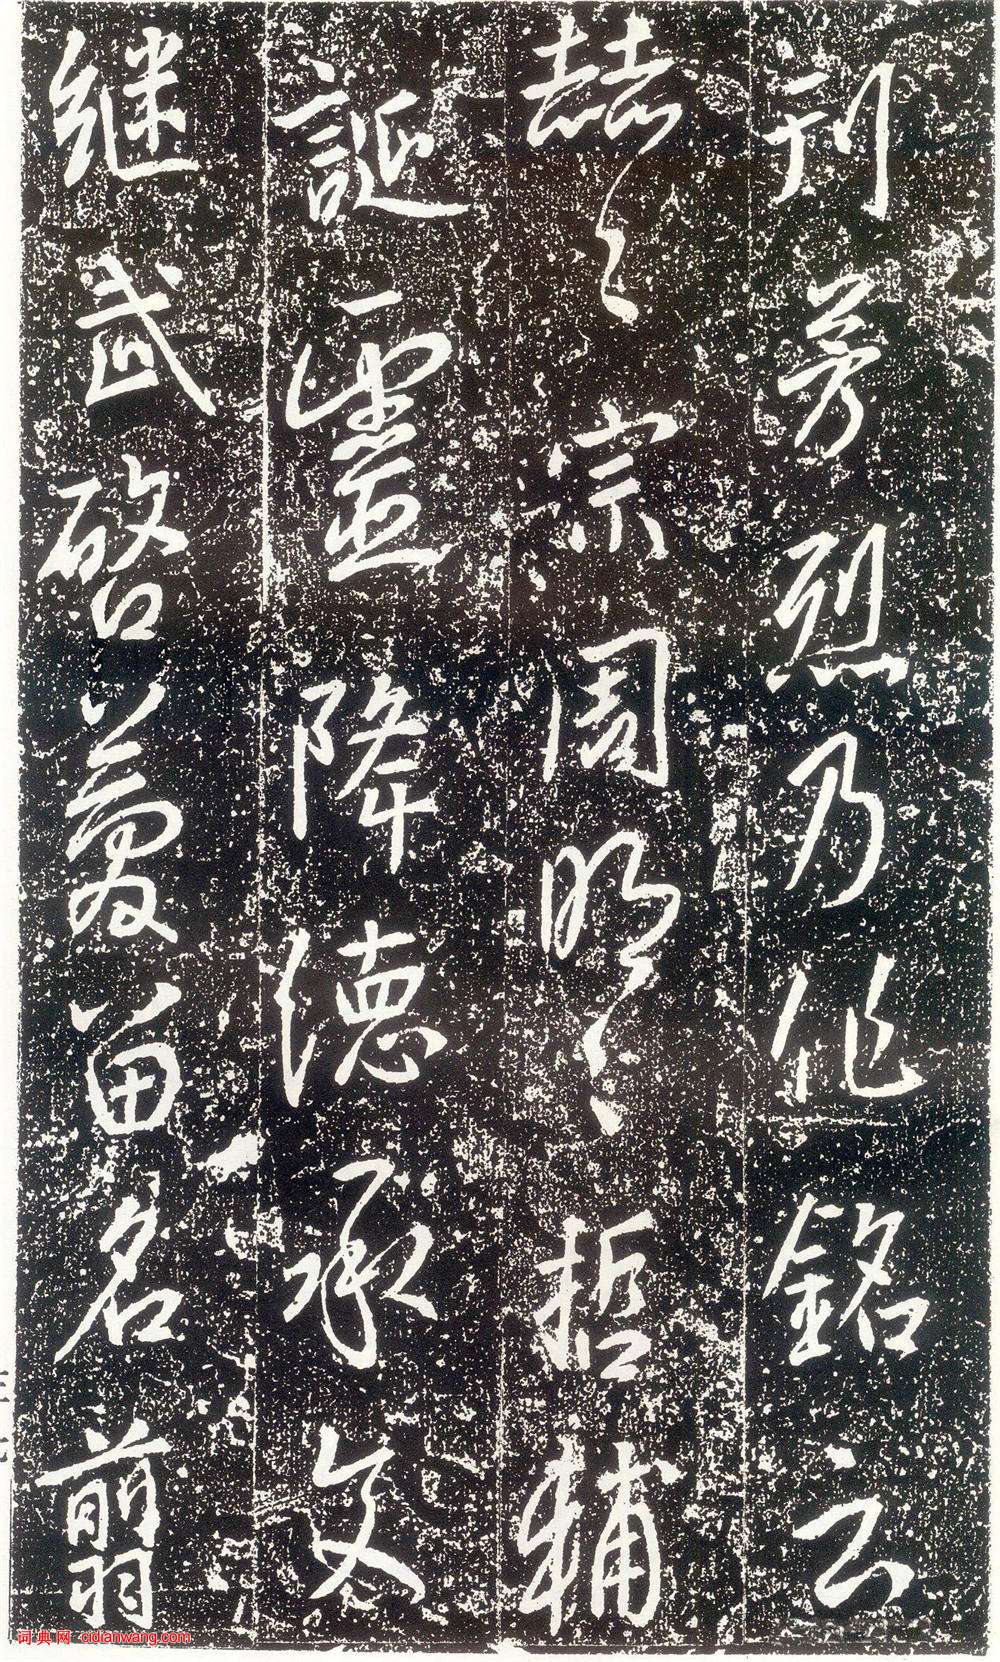 刊芳烈乃作銘云
赫々宗周明々哲輔
誕靈降德承文
継武啓慶留名翦
词典网 cidianwang.com